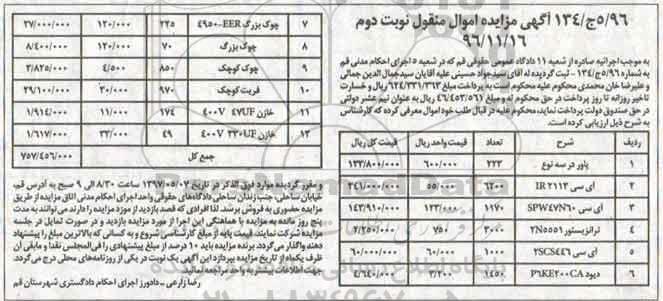 ۱۳۴/ج۵/۹۶ آگهی مزایده اموال منقول نوبت دوم
۹۶/۱۱/۱۶
به موجب اجرائیه صادره از شعبه ۱۱ دادگاه عمومی حقوقی قم که در شعبه ۵ اجرای احکام مدنی قم
به شماره ۱۳۴/ج۵/۹۶ – ثبت گردیده له آقای سیدجواد حسینی علیه آقایان سیدجمال الدین جمالی
و علیرضا خان محمدی محکوم علیه محکوم است به پرداخت مبلغ ۶۲۴/۳۳۱/۳۱۳ ریال و خسارت
تاخیر روزانه تا روز پرداخت در حق محکوم له و مبلغ ۴۶/۴۵۳/۵۶۱ ریال به عنوان نیم عشر دولتی
در حق صندوق دولت پرداخت نماید، محکوم علیه در قبال طلب خود اموال معرفی کرده که کارشناس
به شرح ذیل ارزیابی کرده است.
ردیف شرح تعداد قیمت واحد ریال قیمت کل ریال
۱ پاور در سه نوع ۲۲۳ ۶۰۰/۰۰۰ ۱۳۳/۸۰۰/۰۰۰
۲ آی سی IR ۲۱۱۳ ۶۲۰۰ ۵۵/۰۰۰ ۳۴۱/۰۰۰/۰۰۰
۳ آی سی SPW۴۷N۶۰ ۱۱۷۰ ۱۲۳/۰۰۰ ۱۴۳/۹۱۰/۰۰۰
۴ ترانزیستور ۲N۵۵۵۱ ۳۰۰۰ ۷۵۰ ۲/۲۵۰/۰۰۰
۵ آی سی ۲SC۵۴۴۶ ۱۰۰۰ ۶۰/۰۰۰ ۶۰/۰۰۰/۰۰۰
۶ دیود P۶KE۲۰۰CA ۱۴۵۰ ۳/۲۰۰ ۴/۶۴۰/۰۰۰
۷ چوک بزرگ EER-۴۹۵۰ ۲۲۵ ۱۲۰/۰۰۰ ۲۷/۰۰۰/۰۰۰
۸ چوک بزرگ ۷۰ ۱۲۰/۰۰۰ ۸/۴۰۰/۰۰۰
۹ چوک کوچک ۸۵۰ ۴/۵۰۰ ۳/۸۲۵/۰۰۰
۱۰ فریت کوچک ۹۷۰ ۳۰/۰۰۰ ۲۹/۱۰۰/۰۰۰
۱۱ خازن ۴۷UF ۴۰۰V ۱۷۴ ۱۱/۰۰۰ ۱/۹۱۴/۰۰۰
۱۲ خازن ۲۲۰UF ۴۰۰V ۴۹ ۳۳/۰۰۰ ۱/۶۱۷/۰۰۰
جمع کل ۷۵۷/۴۵۶/۰۰۰
و مقرر گردیده موارد فوق الذکر در تاریخ ۱۳۹۷/۰۵/۰۷ ساعت ۸/۳۰ الی ۹ صبح به آدرس قم،
خیابان ساحلی، جنب زندان ساحلی دادگاه‌های حقوقی واحد اجرای احکام مدنی اتاق مزایده از طریق
مزایده حضوری به فروش برسد. لذا افرادی که قصد بازدید از مورد مزایده را دارند می‌توانند به مدت
پنج روز مانده به مزایده با هماهنگی این اجرا از مورد مزایده بازدید و در صورت تمایل در جلسه
مزایده شرکت نمایند. قیمت پایه از مبلغ کارشناسی شروع و به کسانی که بالاترین مبلغ را پیشنهاد
دهند واگذار می‌گردد. برنده مزایده باید ۱۰ درصد از مبلغ پیشنهادی را فی‌المجلس نقدا و مابقی آن
ظرف یکماه از تاریخ مزایده بپردازد این آگهی یک نوبت در یکی از روزنامه‌های محلی درج می‌گردد.
جهت اطلاعات بیشتر به واحد مراجعه نمائید.
رضا زارعی – دادورز اجرای احکام دادگستری شهرستان قم